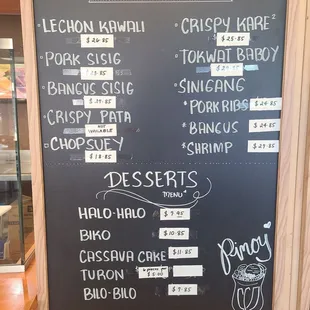 LECHON KAWALI
$26.85
PORK SISIG
BANGUS SISIG
$29.85
CRISPY PATA
NOT AVAILABLE
CHOPSUEY
$18.85
CRISPY KARE²
$25.85
TOKWAT BABOY
SINIGANG
*PORK RIBS $24.85
BANGUS $24.85
*SHRIMP $27.85
DESSERTS
MENU
HALO-HALO $9.95
BIKO $10.85
CASSAVA CAKE $11.85
TURON
BILO-BILO $9.85
Pinoy